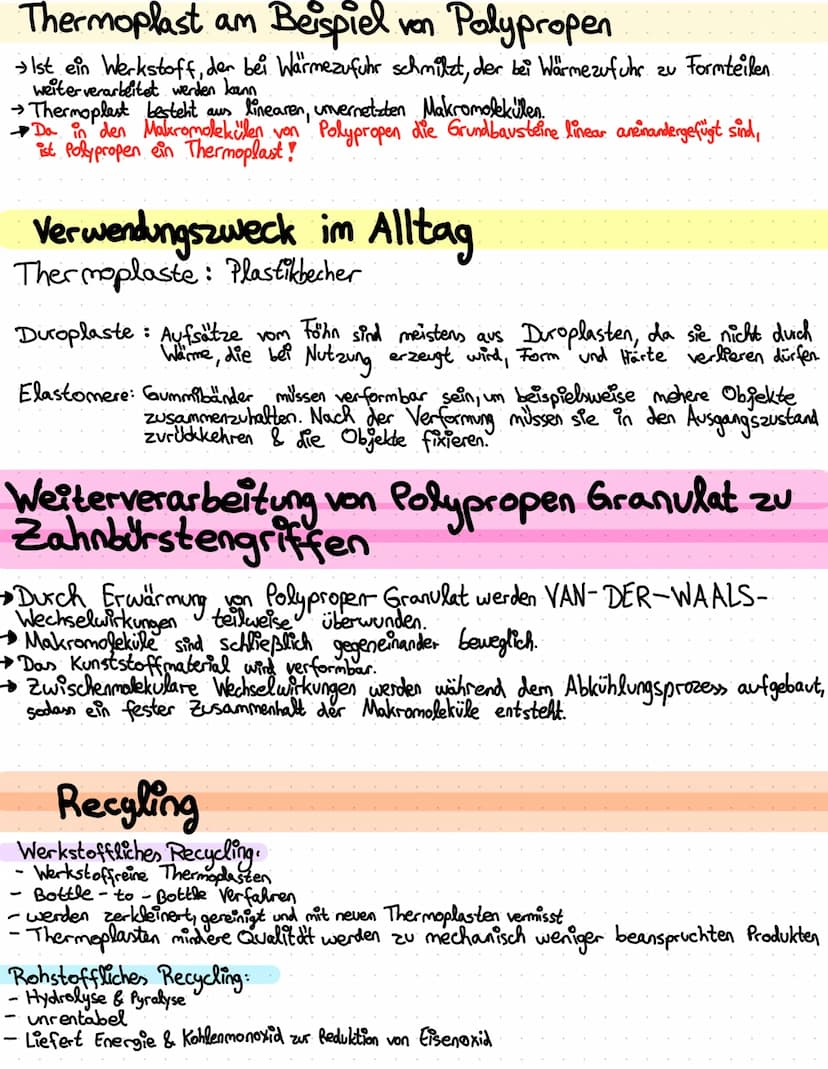 Thermoplast am Beispiel von Polypropen
→ Ist ein Werkstoff, der bei Wärmezufuhr schmilzt, der bei Wärmezufuhr zu Formteilen
weiterverarbeitet werden kann
→ Thermoplast besteht aus linearen, unvernetzten Makromolekülen.
→ Da in den Makromolekülen von Polypropen die Grundbausteine linear aneinandergefügt sind,
ist Polypropen ein Thermoplast!
Verwendungszweck im Alltag
Thermoplaste: Plastikbecher
Duroplaste: Aufsätze vom Föhn sind meistens aus Duroplasten, da sie nicht durch
Wärme, die bei Nutzung erzeugt wird, Form und Härte verlieren dürfen
Elastomere: Gummibänder müssen verformbar sein, um beispielsweise mehere Objekte
zusammenzuhalten. Nach der Verformung müssen sie in den Ausgangszustand
zurückkehren & die Objekte fixieren.
Weiterverarbeitung von Polypropen Granulat zu
Zahnbürstengriffen
→ Durch Erwärmung von Polypropen-Granulat werden VAN-DER-WAALS-
Wechselwirkungen teilweise überwunden.
→ Makromoleküle sind schließlich gegeneinander beweglich.
→ Das Kunststoffmaterial wird verformbar.
→ Zwischenmolekulare Wechselwirkungen werden während dem Abkühlungsprozess aufgebaut,
sodass ein fester Zusammenhalt der Makromoleküle entsteht.
Recyling
Werkstoffliches Recycling:
- Werkstoffreine Thermoplasten
- Bottle-to-Bottle Verfahren
- werden zerkleinert, gereinigt und mit neuen Thermoplasten vermisst
- Thermoplasten mindere Qualität werden zu mechanisch weniger beanspruchten Produkten
Rohstoffliches Recycling:
- Hydrolyse & Pyralyse
- unrentabel
- Liefert Energie & Kohlenmonoxid zur Reduktion von Eisenoxid